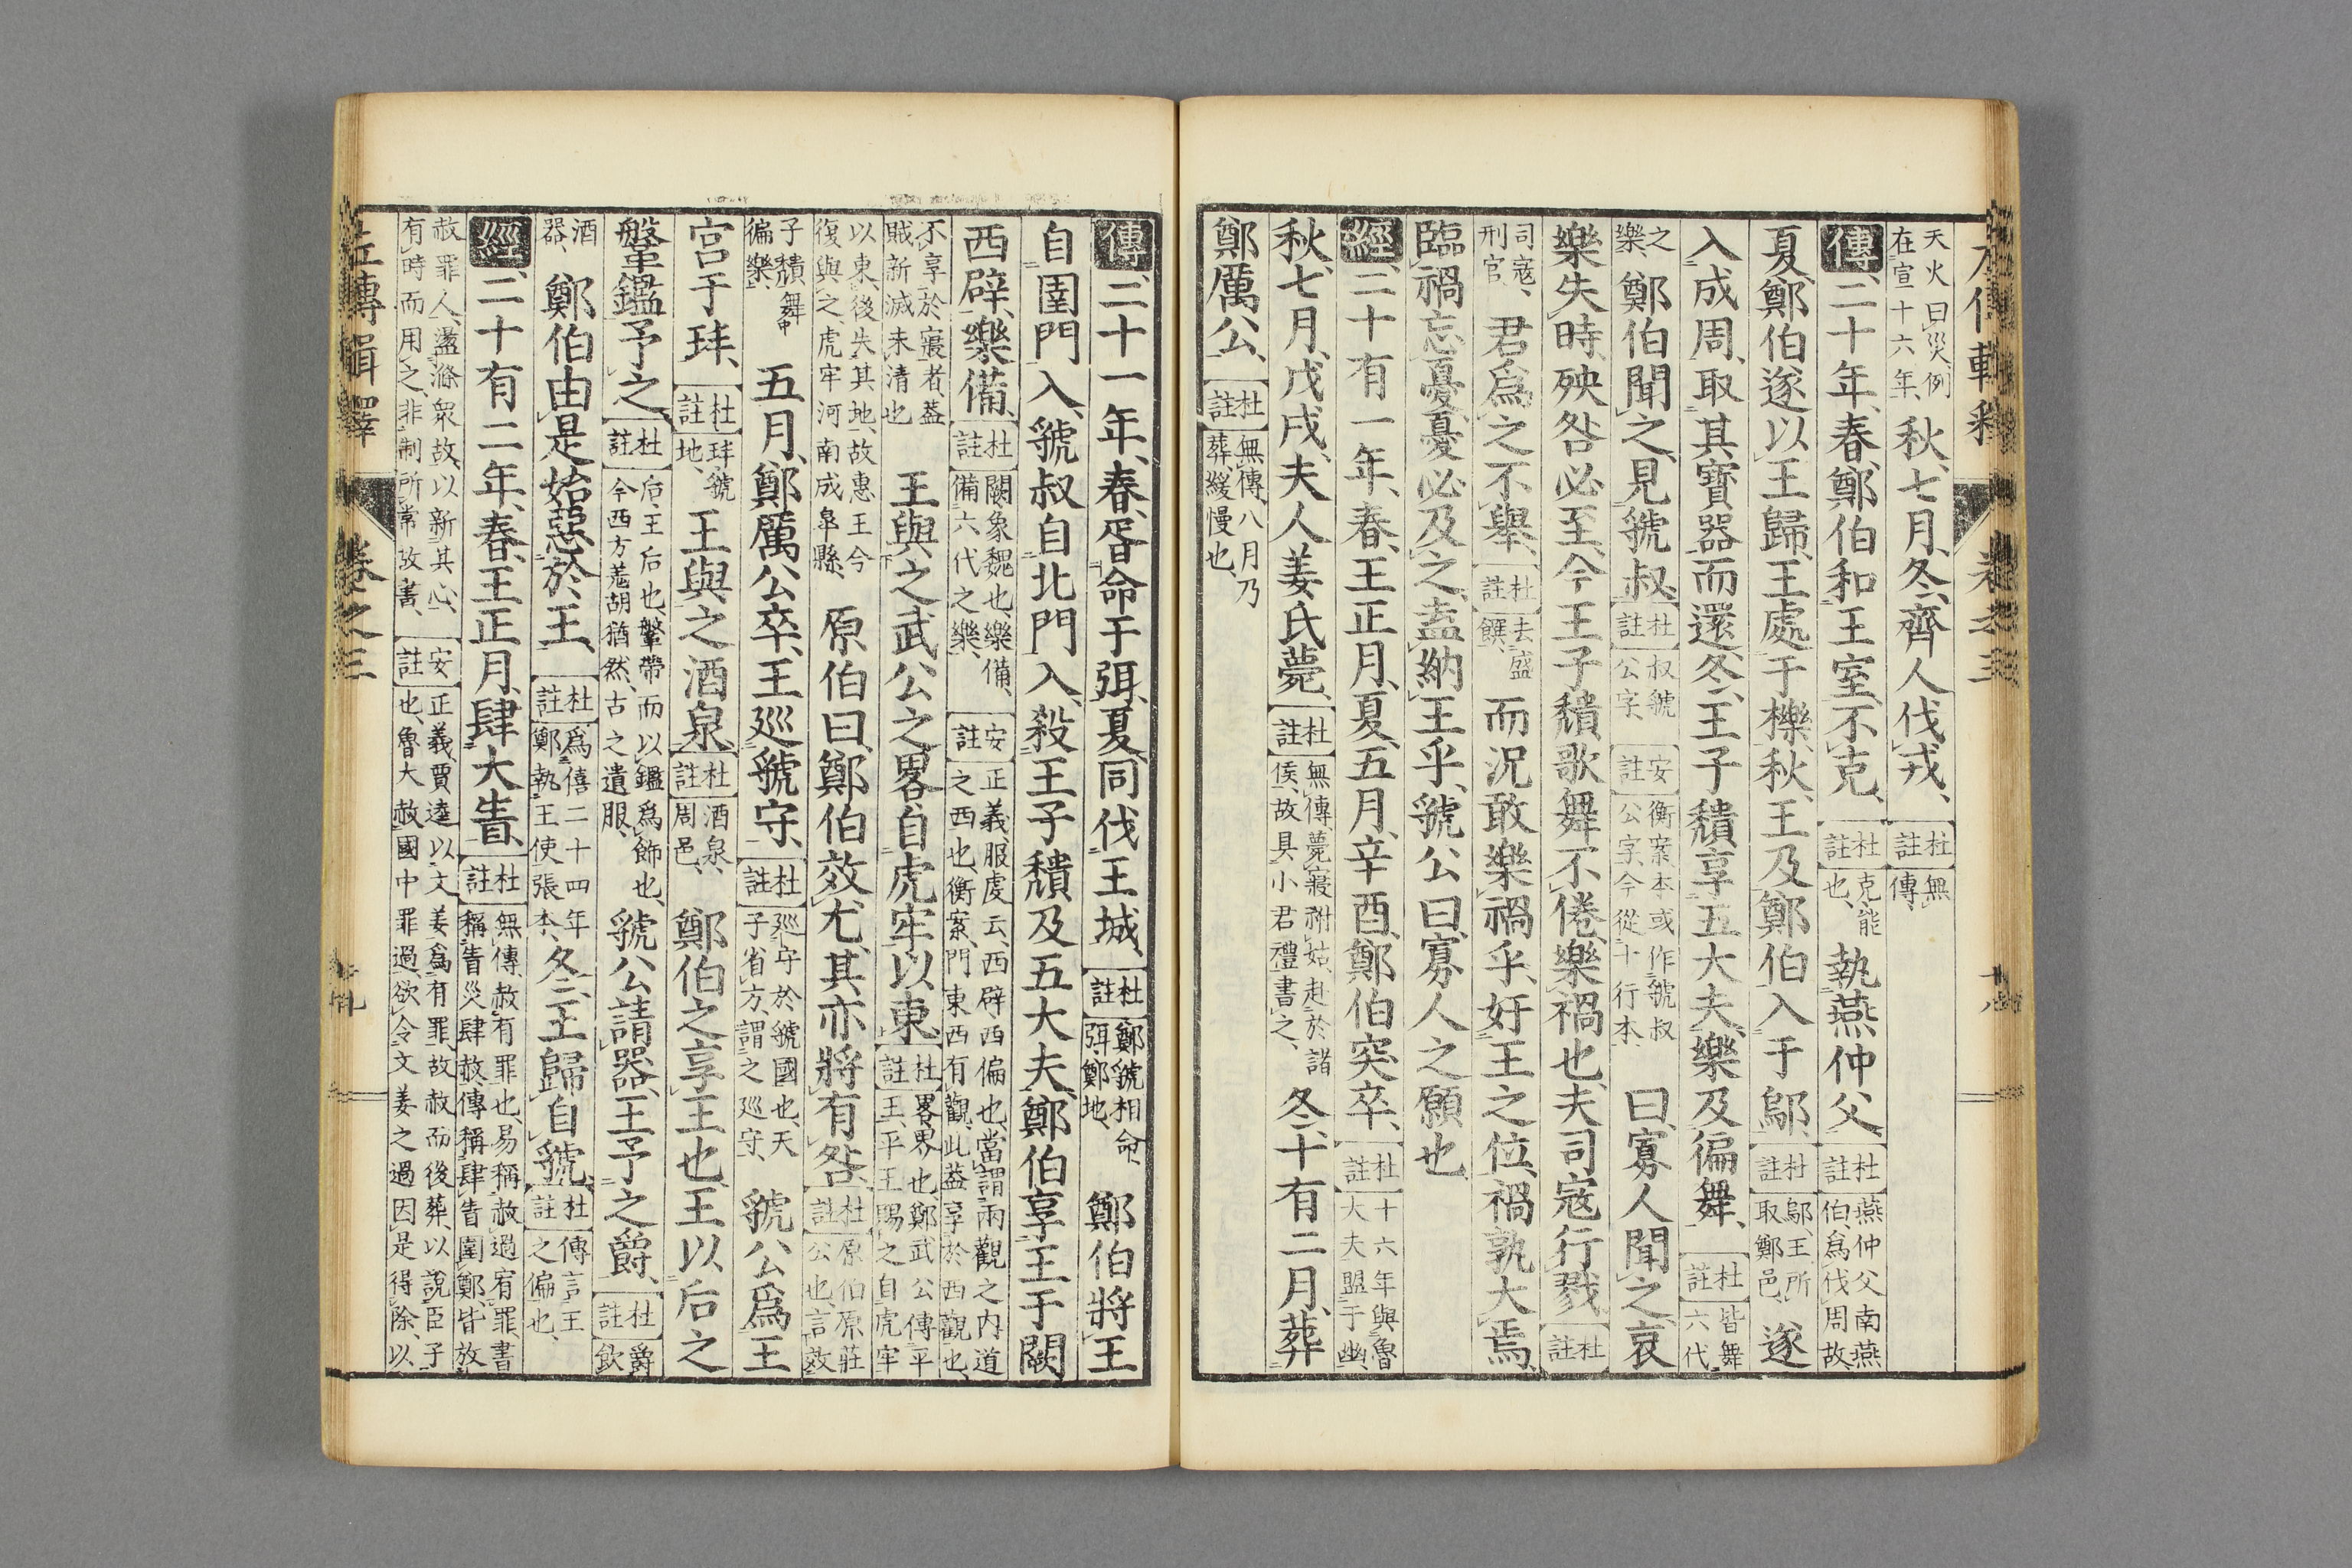 天火曰災、例
在宣十六年、
秋、七月、冬、齊人伐戎、
杜註
無傳、
傳、二十年、春、鄭伯和王室、不克、
杜註
克、能也、
執燕仲父、
杜註
燕仲父南燕伯、爲伐周故、
夏、鄭伯遂以王歸、王處于櫟、秋、王及鄭伯入于鄔、
杜註
鄔、王所取鄭邑、
遂
入成周、取其寶器而還、冬、王子穨享五大夫、樂及徧舞、
杜註
皆舞六代
之樂、
鄭伯聞之、見虢叔、
杜註
叔虢公字、
安註
衡案、本或作虢叔公字、今從十行本、
曰、寡人聞之、哀
樂失時、殃咎必至、今王子穨歌舞不倦、樂禍也、夫司寇行戮、
杜註
司寇、刑官、
君爲之不舉、
杜註
去盛饌、
而況敢樂禍乎、奸王之位、禍孰大焉、
臨禍忘憂、憂必及之、盍納王乎、虢公曰、寡人之願也、
經、二十有一年、春、王正月、夏、五月、辛酉、鄭伯突卒、
杜註
十六年與魯大夫盟于幽、
秋、七月、戊戌、夫人姜氏薨、
杜註
無傳、薨寢祔姑、赴於諸侯、故具小君禮書之、
冬、十有二月、葬
鄭厲公、
杜註
無傳、八月乃葬、緩慢也、
卷之三
傳、二十一年、春、胥命于弭、夏、同伐王城、
杜註
鄭虢相命、弭、鄭地、
鄭伯將王
自圉門入、虢叔自北門入、殺王子穨及五大夫、鄭伯享王于闕
西辟、樂備、
杜註
闕、象魏也、樂備、備六代之樂、
安註
正義服虔云、西辟西偏也、當謂兩觀之內道之西也、衡案、門東西有觀、此蓋享於西觀也、
不享於寢者、蓋賊新滅未清也
王與之武公之畧、自虎牢以東、
杜註
畧、界也、鄭武公傅平王、平王賜之自虎牢
以東、後失其地、故惠王今復與之、虎牢河南成皐縣、
原伯曰、鄭伯效尤、其亦將有咎、
杜註
原伯原莊公也、言效
子穨舞徧樂、
五月、鄭厲公卒、王巡虢守、
杜註
巡守於虢國也、天子省方、謂之巡守、
虢公爲王
宮于玤、
杜註
玤、虢地、
王與之酒泉、
杜註
酒泉、周邑、
鄭伯之享王也、王以后之
鞶鑑予之、
杜註
后、王后也、鞶帶而以鑑爲飾也、今西方羌胡猶然、古之遺服、
虢公請器、王予之爵、
杜註
爵飮
酒器、
鄭伯由是始惡於王、
杜註
爲僖二十四年鄭執王使張本、
冬、王歸自虢、
杜註
傳言王之偏也、
經、二十有二年、春、王正月、肆大眚、
杜註
無傳、赦有罪也、易稱赦過宥罪、書稱眚災肆赦、傳稱肆眚圍鄭、皆放
赦罪人、盪滌衆故、以新其心、有時而用之、非制所常、故書、
安註
正義賈逵以文姜爲有罪、故赦而後葬、以說臣子也、魯大赦國中罪過、欲令文姜之過因是得除、以
左傳輯釋
卷之三